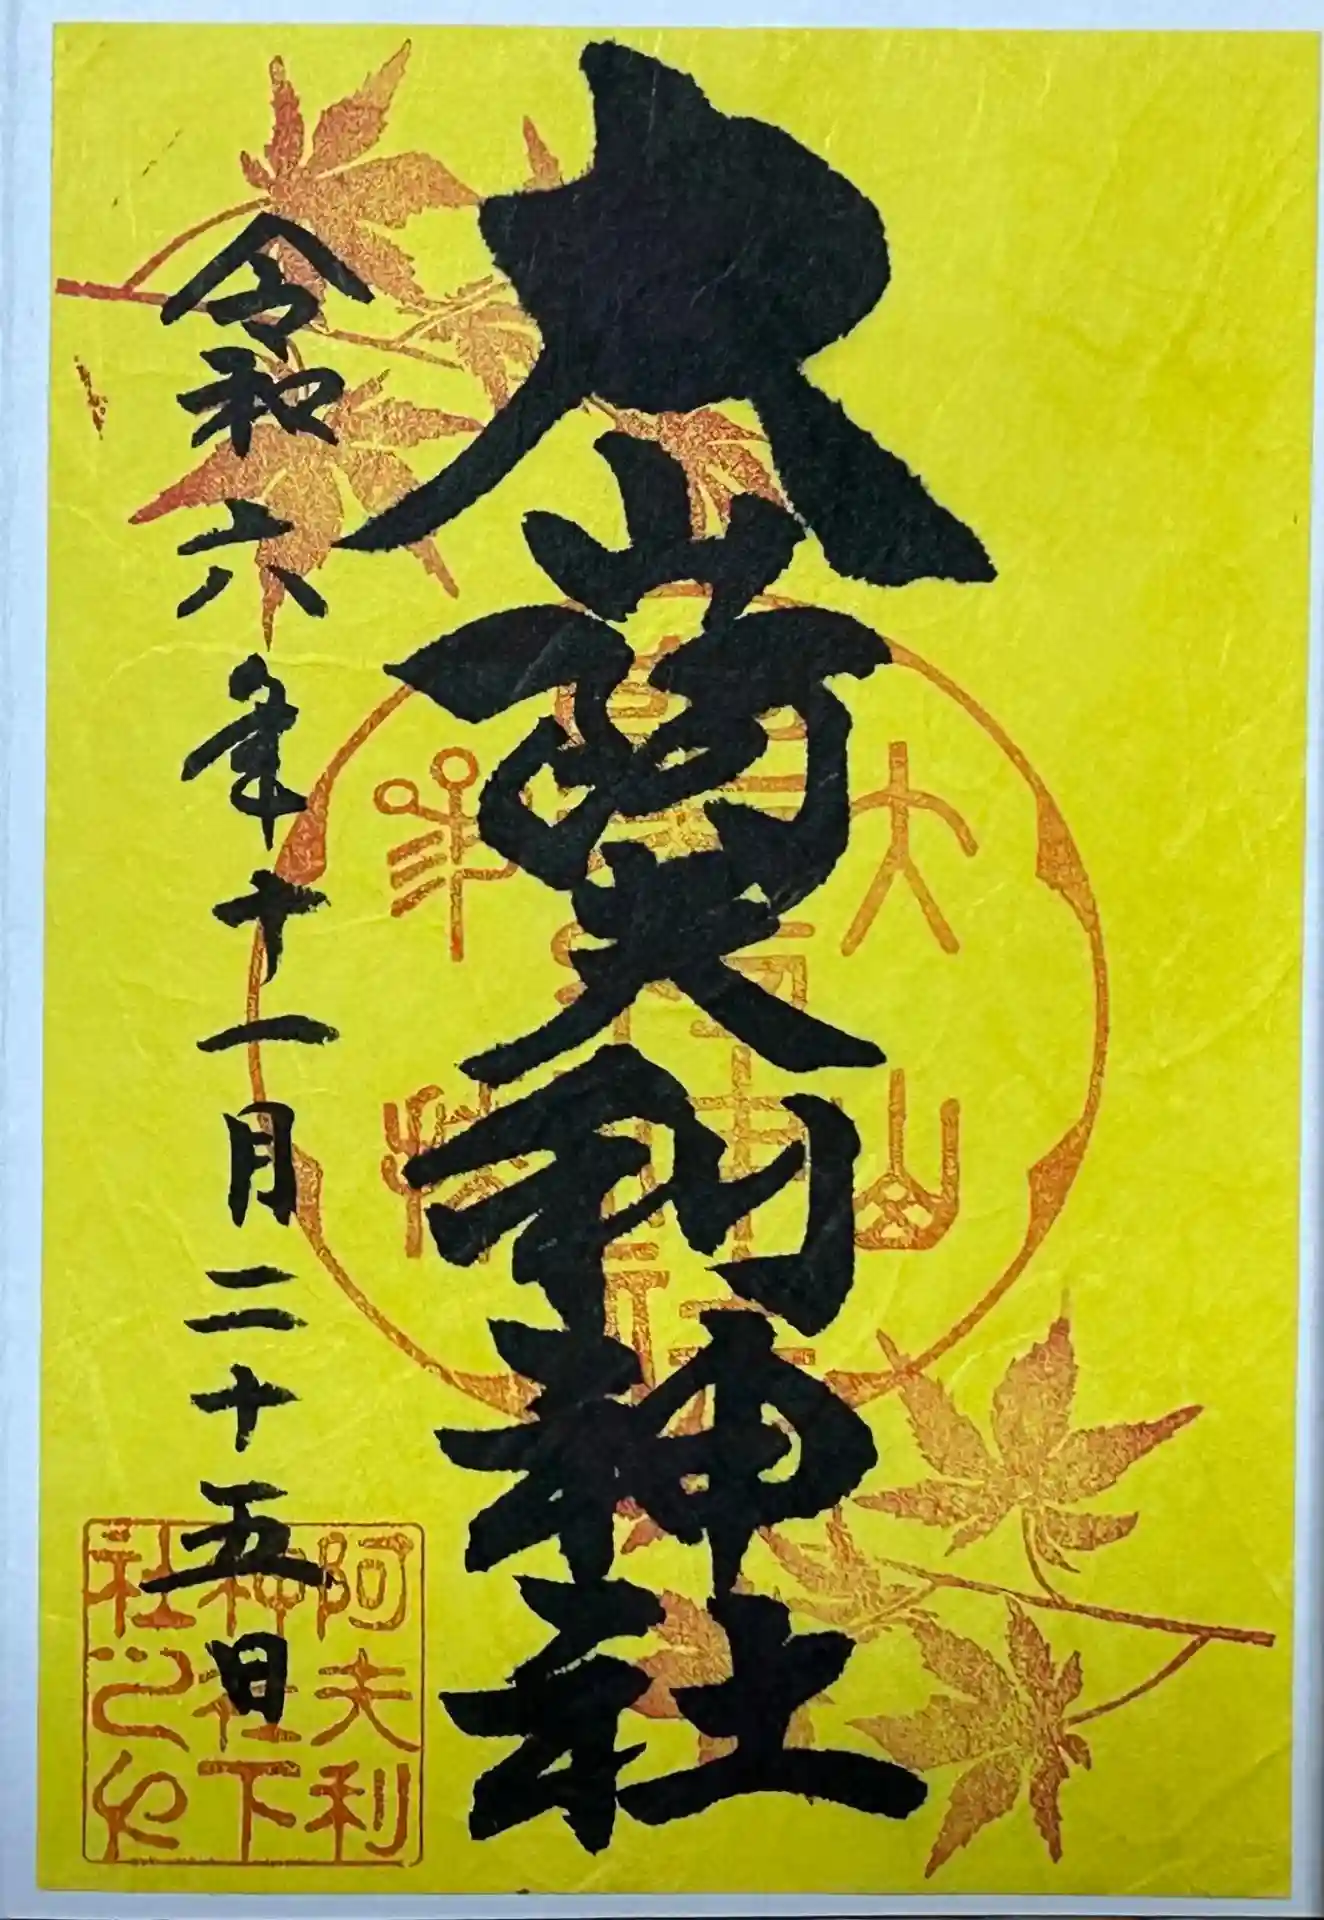 大山阿夫利神社
令和六年十一月二十五日
大山
阿夫利
神社下
社之印